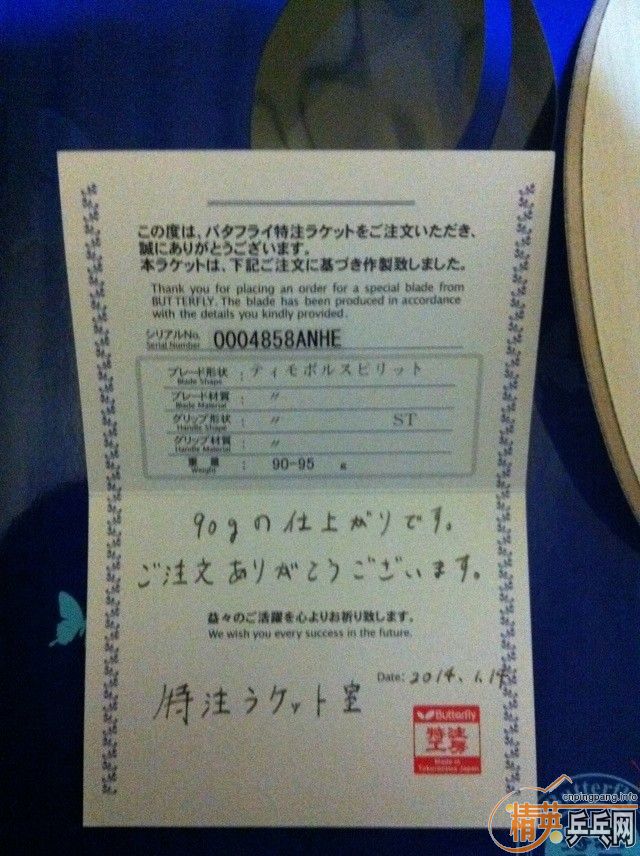 この度は、バタフライ特注ラケットをご注文いただき、
誠にありがとうございます。
本ラケットは、下記ご注文に基づき作製致しました。
Thank you for placing an order for a special blade from
BUTTERFLY. The blade has been produced in accordance
with the details you kindly provided.
シリアルNo. 0004858ANHE
Serial Number
ブレード形状 : ティモボルスピリット
Blade Shape
ブレード材質 : 〃
Blade Material
グリップ形状 : 〃 ST
Handle Shape
グリップ材質 : 〃
Handle Material
重量 : 90-95 g
Weight
90gの仕上がりです。
ご注文ありがとうございます。
益々のご活躍を心よりお祈り致します。
We wish you every success in the future.
Date: 2014.1.14
特注ラケット室
Butterfly
特注
工房
Made in
Tokorozawa Japan
cnpingpang.info
精英乒乓网